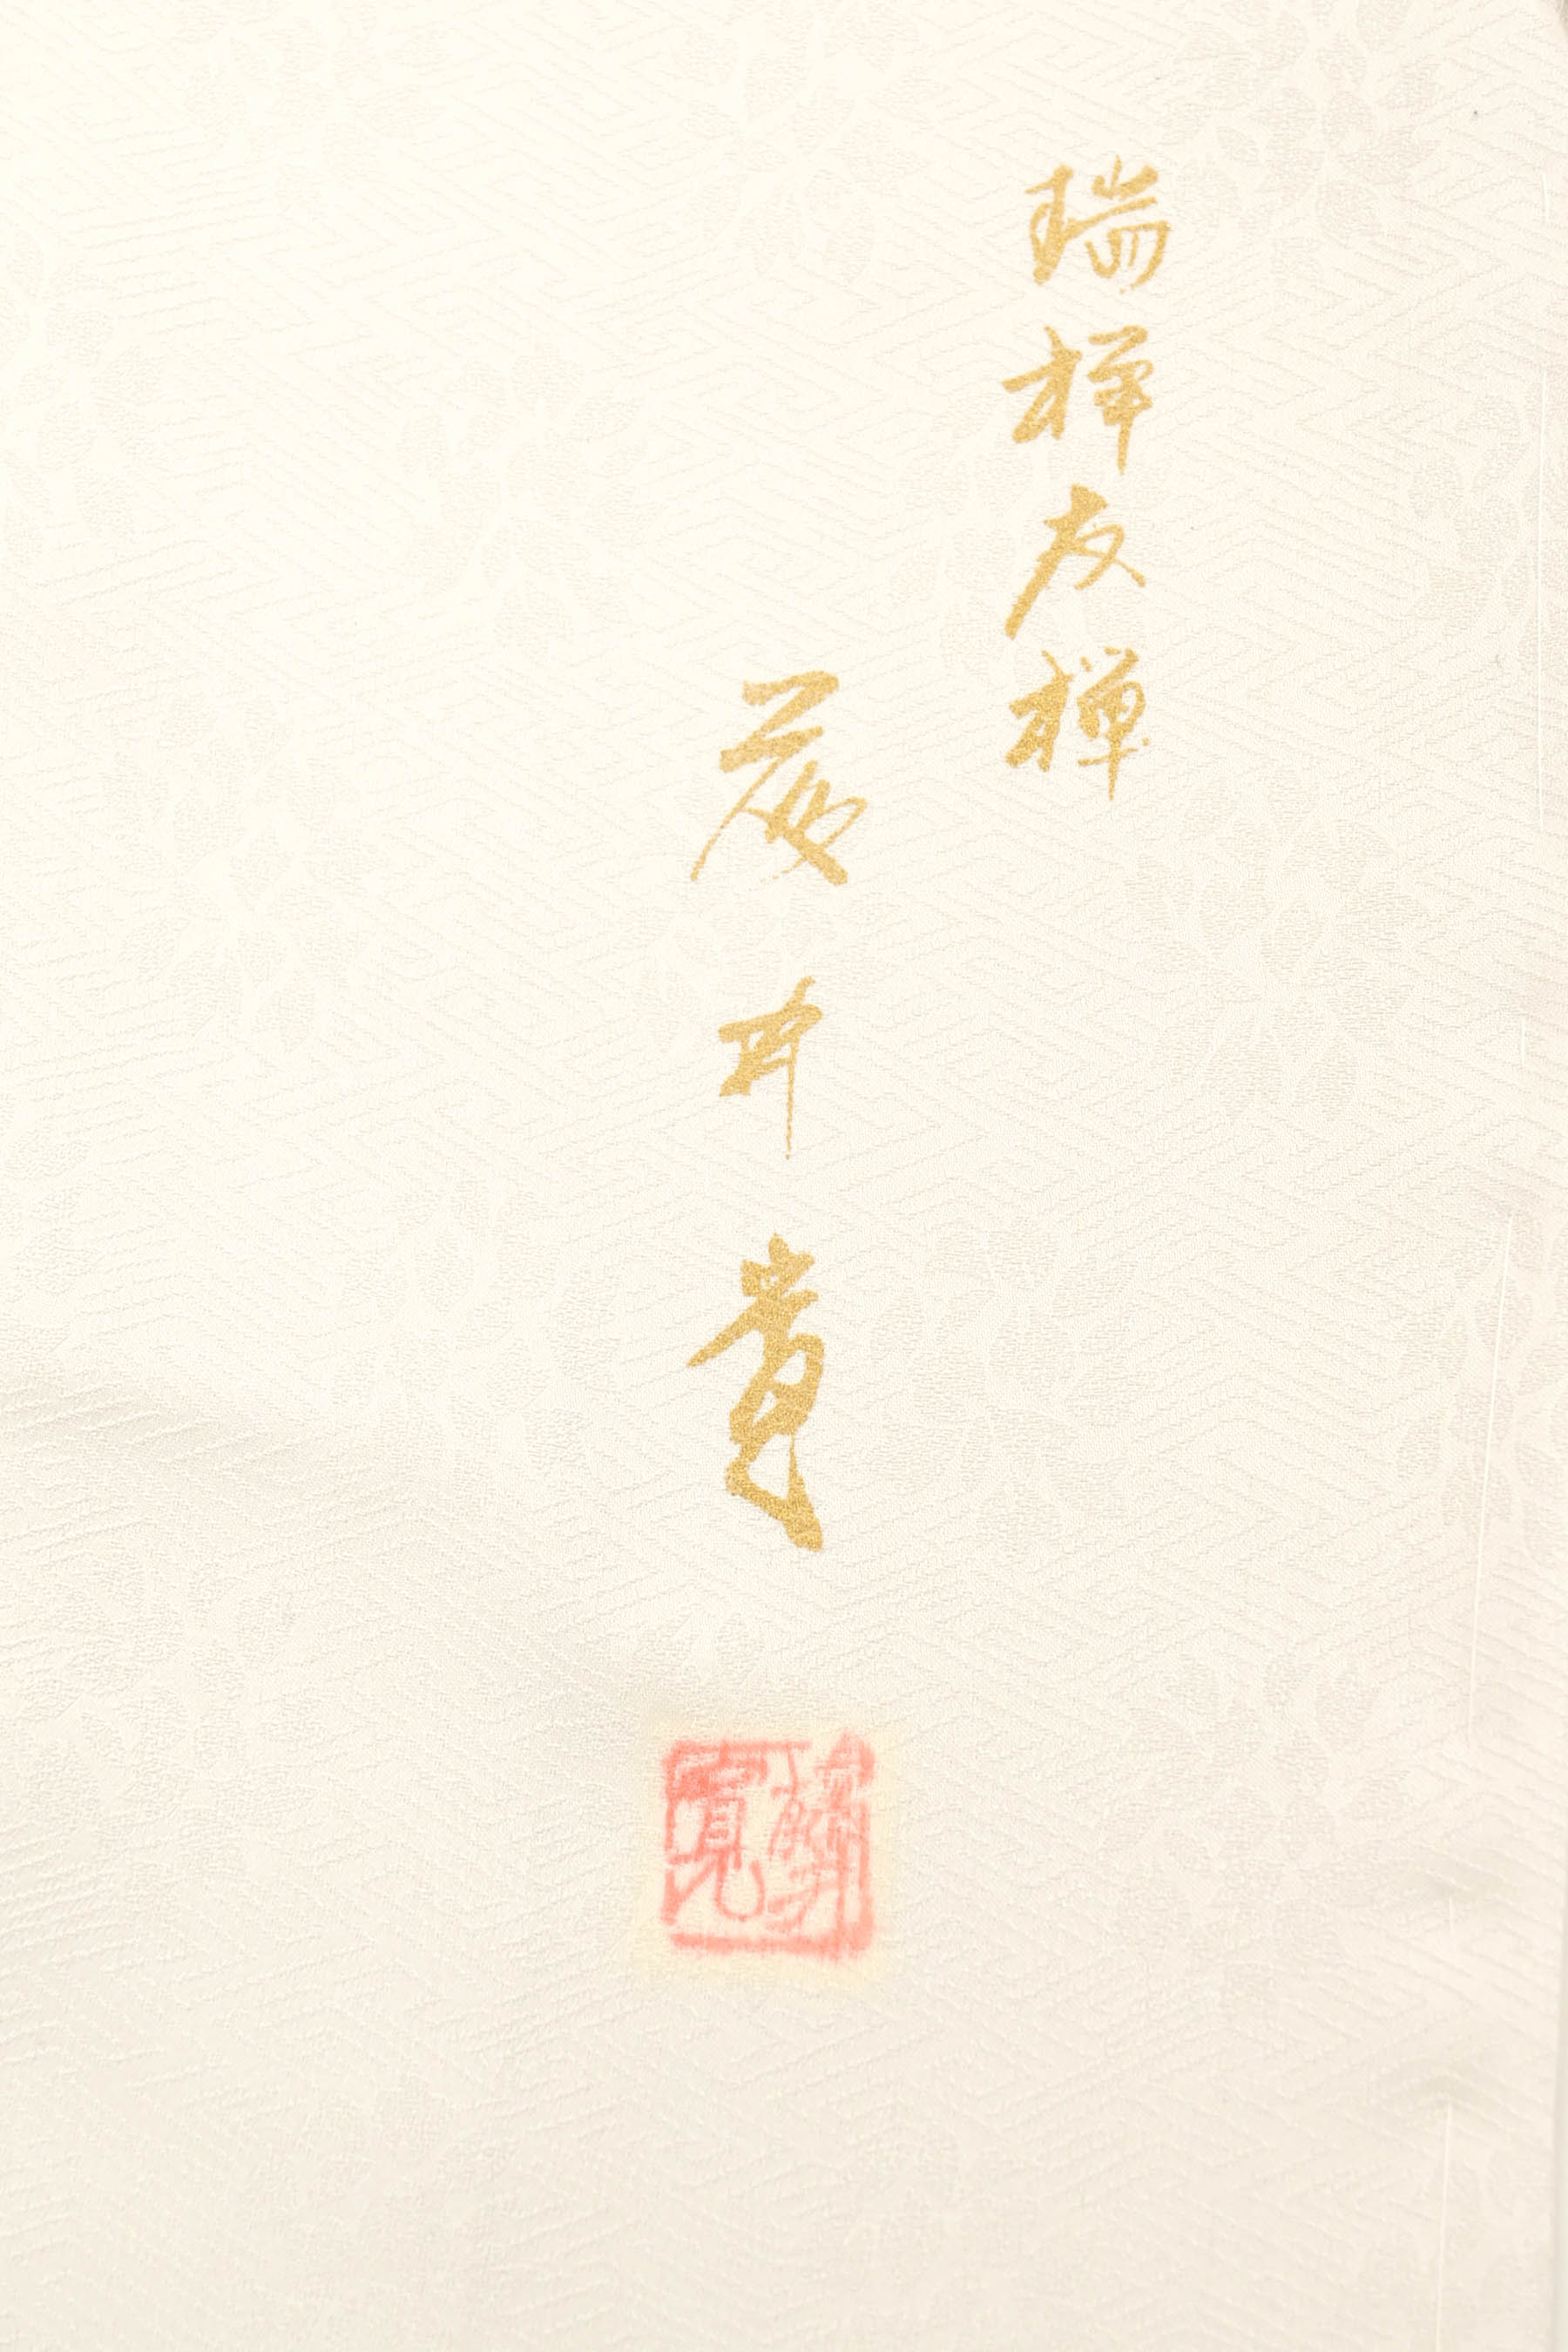 瑞祥友禅
藤井寛